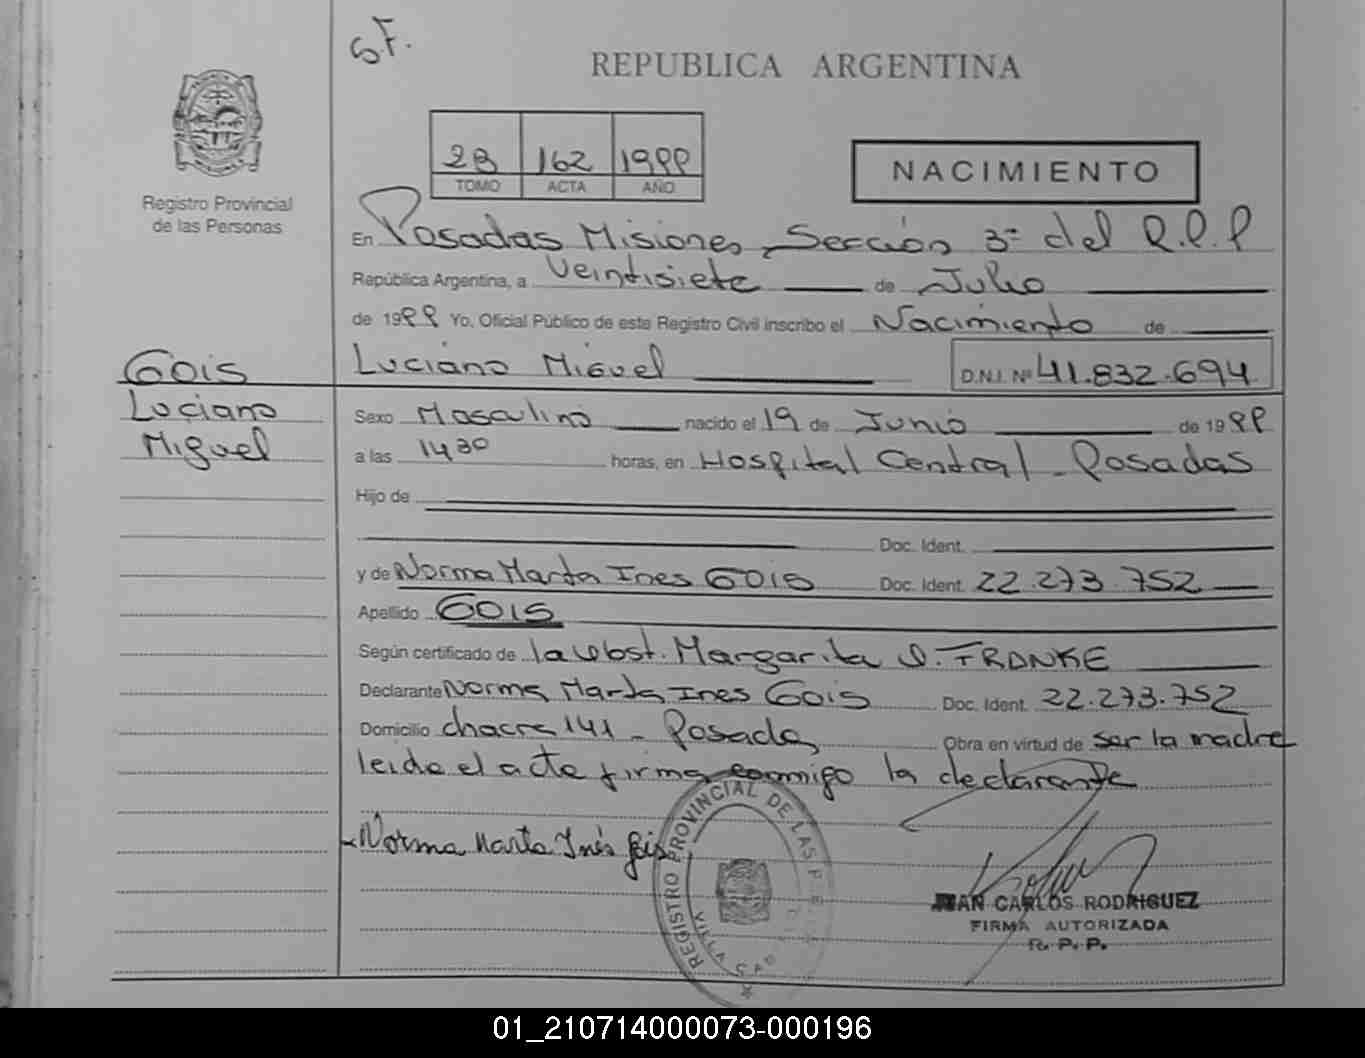 S.F.
REPUBLICA ARGENTINA
2B 162 1999
TOMO ACTA AÑO
NACIMIENTO
Registro Provincial
de las Personas
En Posadas Misiones, Sección 3ª del R.P.P
República Argentina, a Veintisiete de Julio
de 1999 Yo, Oficial Público de este Registro Civil inscribo el Nacimiento de
Luciano Miguel D.N.I. Nº 41.832.694
GOIS
Luciano
Miguel
Sexo Masculino nacido el 19 de Junio de 1999
a las 1430 horas, en Hospital Central - Posadas
Hijo de
Doc. Ident.
y de Norma Marta Ines GOIS Doc. Ident. 22.273.752
Apellido GOIS
Según certificado de la Obst. Margarita O. FRANKE
Declarante Norma Marta Ines Gois Doc. Ident. 22.273.752
Domicilio chacra 141 - Posadas Obra en virtud de ser la madre
leida el acta firma conmigo la declarante
Norma Marta Inés Gois
REGISTRO PROVINCIAL DE LAS PE
JUAN CARLOS RODRIGUEZ
FIRMA AUTORIZADA
R. P. P.
01_210714000073-000196